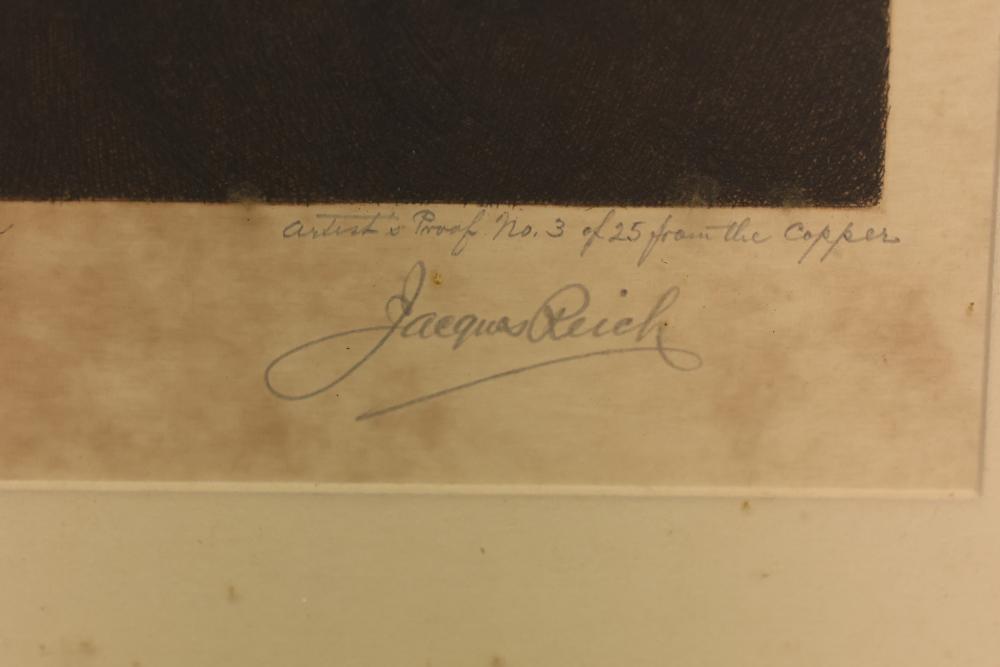 Artist's Proof No. 3 of 25 from the Copper
Jacques Reich